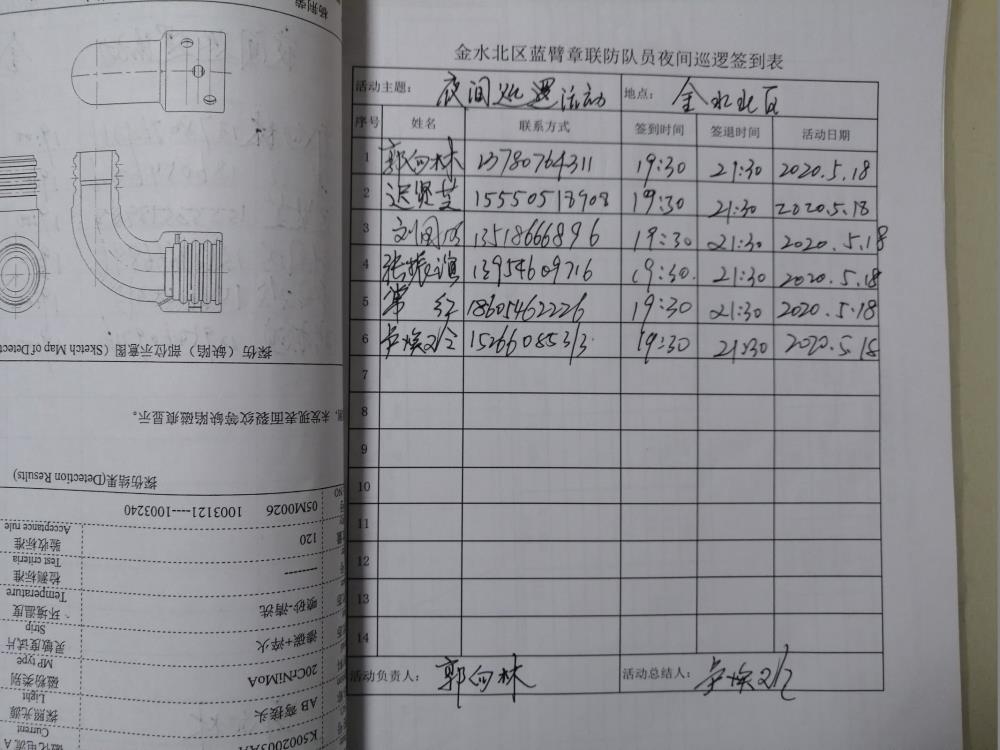 金水北区蓝臂章联防队员夜间巡逻签到表
活动主题: 夜间巡逻活动 地点: 金水北区
序号 姓名 联系方式 签到时间 签退时间 活动日期
1 郭向林 13780764311 19:30 21:30 2020.5.18
2 迟贤芝 15550518908 19:30 21:30 2020.5.18
3 13518666896 19:30 21:30 2020.5.18
4 张振谊 13954609716 19:30 21:30 2020.5.18
5 常红 18605462226 19:30 21:30 2020.5.18
6 15266085313 19:30 21:30 2020.5.18
7
8
9
10
11
12
13
14
活动负责人: 郭向林 活动总结人:
杨荆荣
探伤（缺陷）部位示意图（Sketch Map of Detect
未发现表面裂纹等缺陷磁痕显示。
探伤结果(Detection Results)
05M0026 1003121----1003240
120 验收标准 Acceptance rule
------- 检测标准 Test criteria
喷砂-清洗 环境温度 Temperature
渗碳+淬火 灵敏度试片 Strip
20CrNiMoA 磁粉类别 MP type
AB弯接头 探照光源 Light
K5002003A 磁化电流A Current